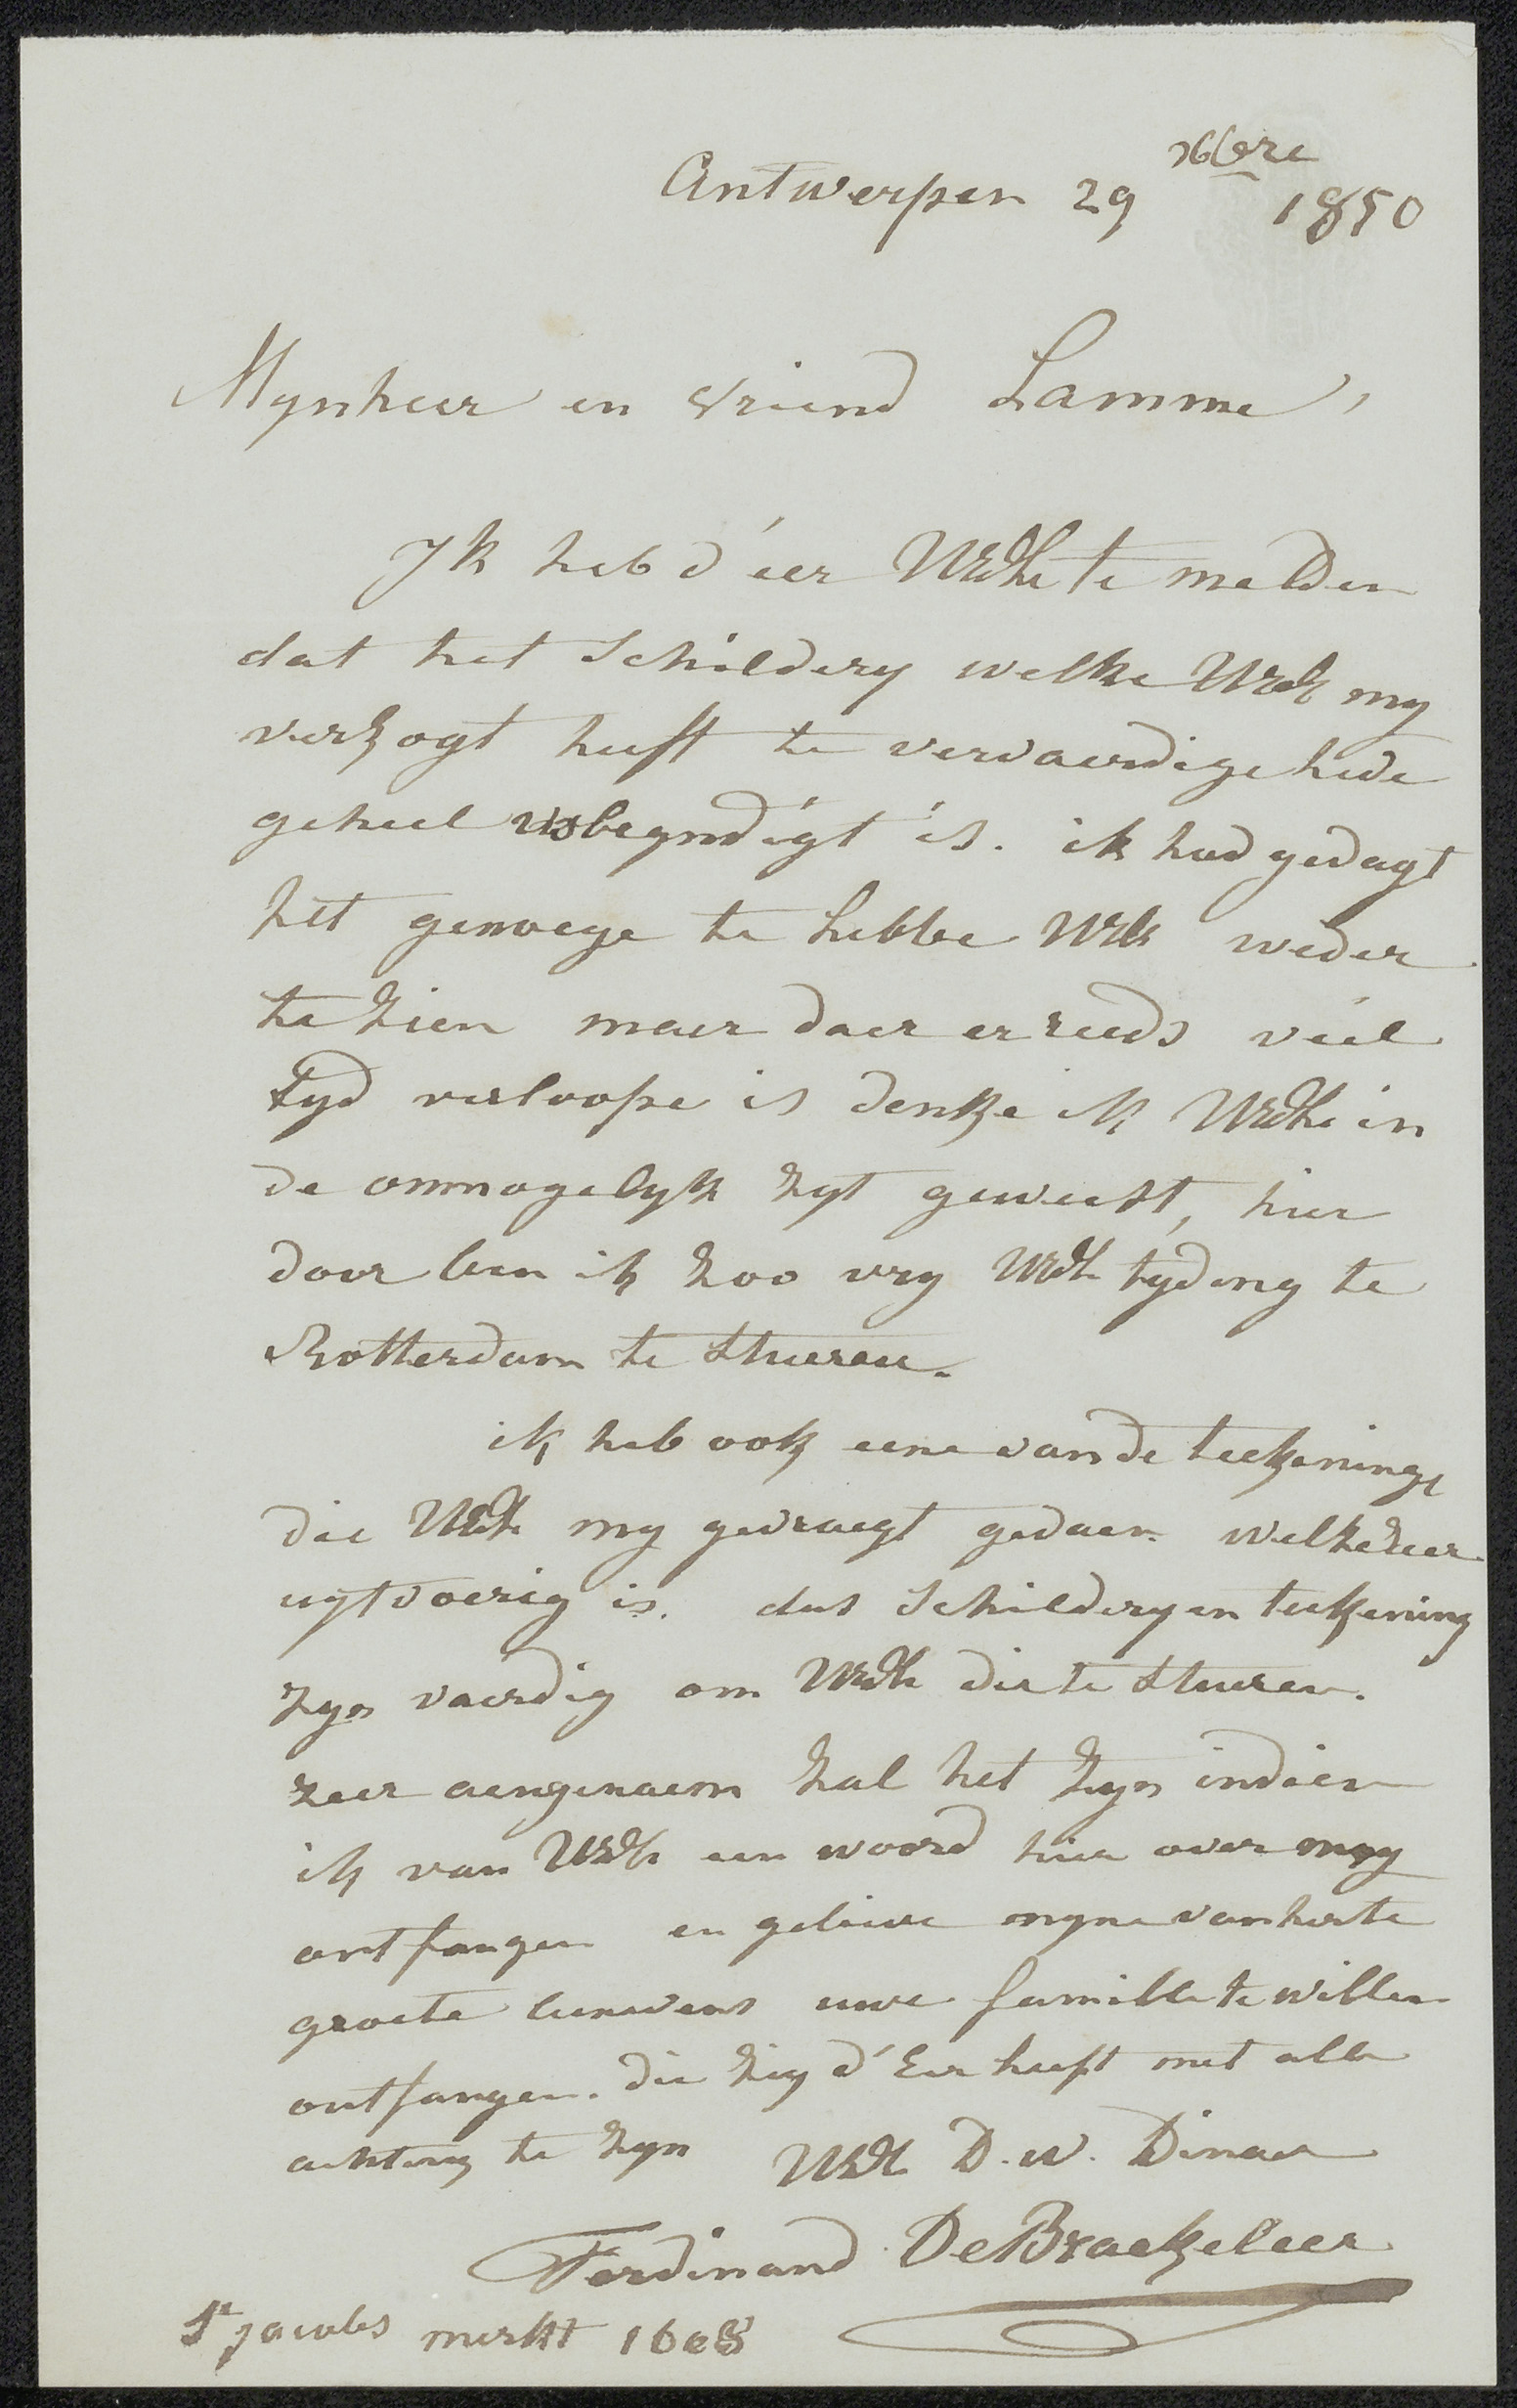 Antwerpen 29 xbre 1850
Mynheer en Vriend Lamme,
Ik heb d'eer UEdh te melden
dat het Schildery welke UEdh my
verzogt heeft te vervaerdige hede
geheel is. ik had gedagt
het genoege te hebbe UEdh weder
te zien maer daer er reeds veel
tyd verloope is denke ik UEdh in
de onmogelyk zyt geweest, hier
door ben ik zoo vry UEdh tyding te
Rotterdam te stueren.
ik heb ook eene van de teekeninge
die UEdh my gevraegt gedaen welke zeer
uytvoerig is. dus Schildery en teekening
zyn vaerdig om UEdh die te stueren.
zeer aengenaem zal het zyn indien
ik van UEdh een woord hier over mag
ontfangen en gelieve myne van herte
groete benevens uwe famille te willen
ontfangen. die zig d'Eer heeft met alle
achting te zyn UEdh D.W. Dinaer
Ferdinand De Braekeleer
St jacobs merkt